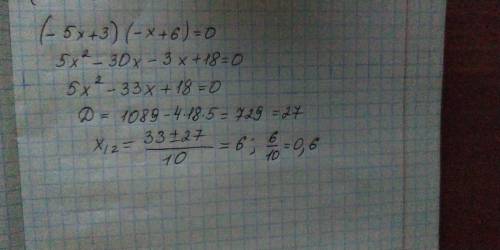 (-5x+3)(-x+6)=0
5x²-30x-3x+18=0
5x²-33x+18=0
Д = 1089-4·18·5=729=27
x₁,₂ = (33±27)/10 = 6; 6/10=0,6